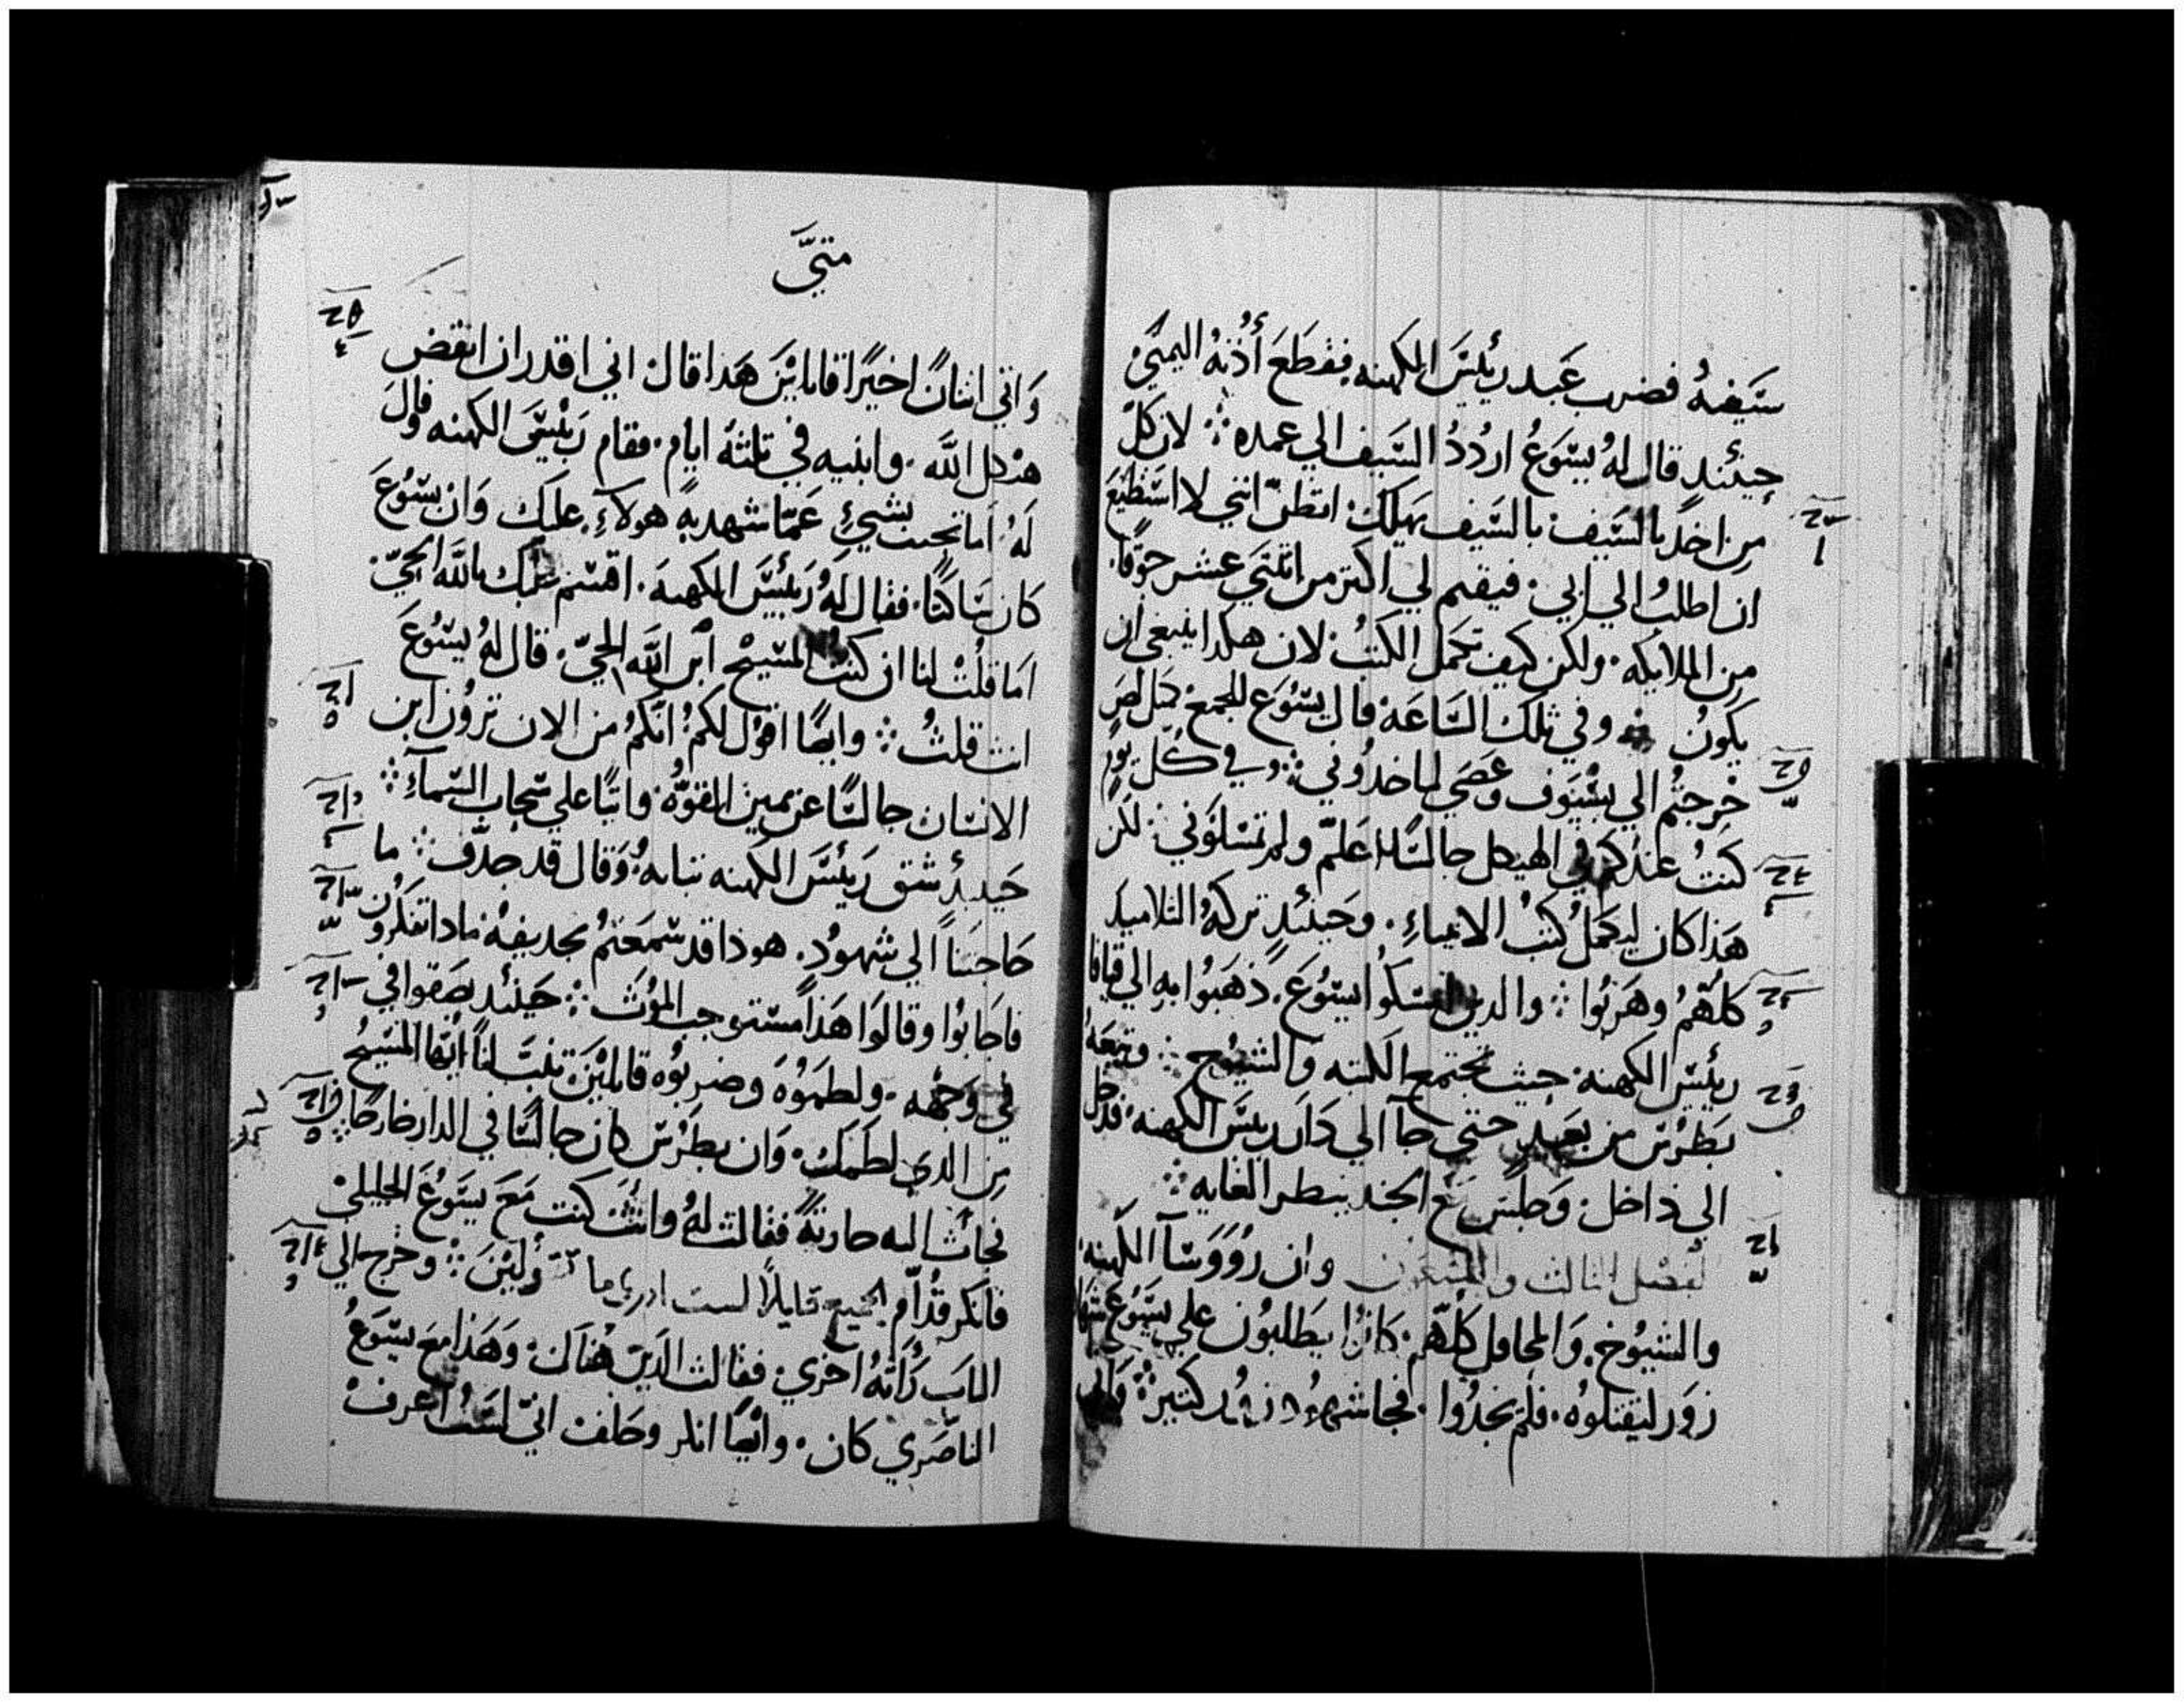 سَيفهُ فضرب عَبد ريُيسَ الكهنه فقطَعَ أُذنهُ اليمني
حينُند قال لهُ يسَوعُ اردُدُ السَيف الي عمده ܀ لان كلّ
من اخدَ بالسَيف بالسَيف يهلك اتظنّ انني لا استطيعَ
ان اطلبُ الي ابي فيقيم لي اكتر من اتنتي عشر جوقًا
من الملايكه ولكن كيف تكمل الكتبُ لان هكدا ينبغي ان
يكونُ وفي تلك السَاعَة قال يسُوعَ للجمع كمتل لصٍ
خرجتُم الي بسُيَوف وعَصَي لتاخدُوني ܀ في كُلّ يومٍ
كنتُ عندكم في الهيكل جالسًا اعلّم ولم تمسَكوني لكن
هَذا كان ليكمَلُ كتبُ الانبياءِ وحَينُيدٍ تركهُ التلاميد
كلهُمُ وهَربُوا ܀ والدين امسَكوُا يسُوعَ ذهَبُوا به الي قيافا
ريُيسَ الكهنه حيث تجتمع الكتبه والشيُوخ ܀ وتبعَهُ
بَطرُسَ من بعَيدٍ حتي جآ الي دَار ريسَ الكهنه فدخل
الي داخل وَجلسَ مع الجند ينظر الغايه ܀
لفصَل الثالث والتسَعون وان رُوَوَسَآ الكهنه
والشيُوخ وَالمحافل كلهُم كانوُا يَطلبُون علي يسَوُعَ شهادة
زوَر ليقتلوُه فلمَ يجدُوا فجا شهُود زور كتير ܀ وَاتي
متيَّ
وَاتي اتنانُ اخيَرًا قايليَن هَدا قال اني اقدر ان انقض
هيَكل اللّه وابنيه في تلتةُ ايام فقام ريُيسَ الكهنه وقالَ
لهُ اما تجيب بشيءٍ عَمّا شهد به هولاءِ عليك وَان يسُوُعَ
كان سَاكتًا فقال لهُ ريُيسَ الكهنه اقسَم عليك باللّه الحَيّ
اما قلتُ لنا ان كنتُ المسَيحُ ابن اللّه الحيّ قال لهُ يسُوعَ
انت قلتُ ܀ وايضًا اقوُل لكمُ انكمُ من الان ترَوُن ابن
الانسَان جالسًا عن يمين القوّهُ واتيًا علي سَحاب السَماءِ ܀
حَينيدُ شق ريُيسَ الكهنه تيابهُ وَقال قد جدّف ܀ ما
حَاجتنا الي شهوُد هودا قد سَمعَتمُ تجديفهُ مادا تفكرُون
فاجابوُا وقالوَا هَذا مستوجب الموُتَ ܀ حَينُيد بصَقوا في
في وَجهه ولطموُهَ وضربوُه قايلينَ تنبَّ لنا ايُها المسَيحُ
من الدي لطمَك وَان بطرُسَ كان جالسًا في الدار خارجًا ܀
فجاتُ اليه جاريةً فقالت لهُ وانتُ كنت مَعَ يسَوعَ الجليلي
فانكر قدُاّم الجميع قايلاً لست ادري ما تقوُليَن ܀ وخرج الي
الباب رَاتهُ اخري فقالت للدَين هُناك وَهَذا معَ يسَوعُ
الناصَري كان وايُضًا انكر وحَلف انيّ لسَتُ اعرف